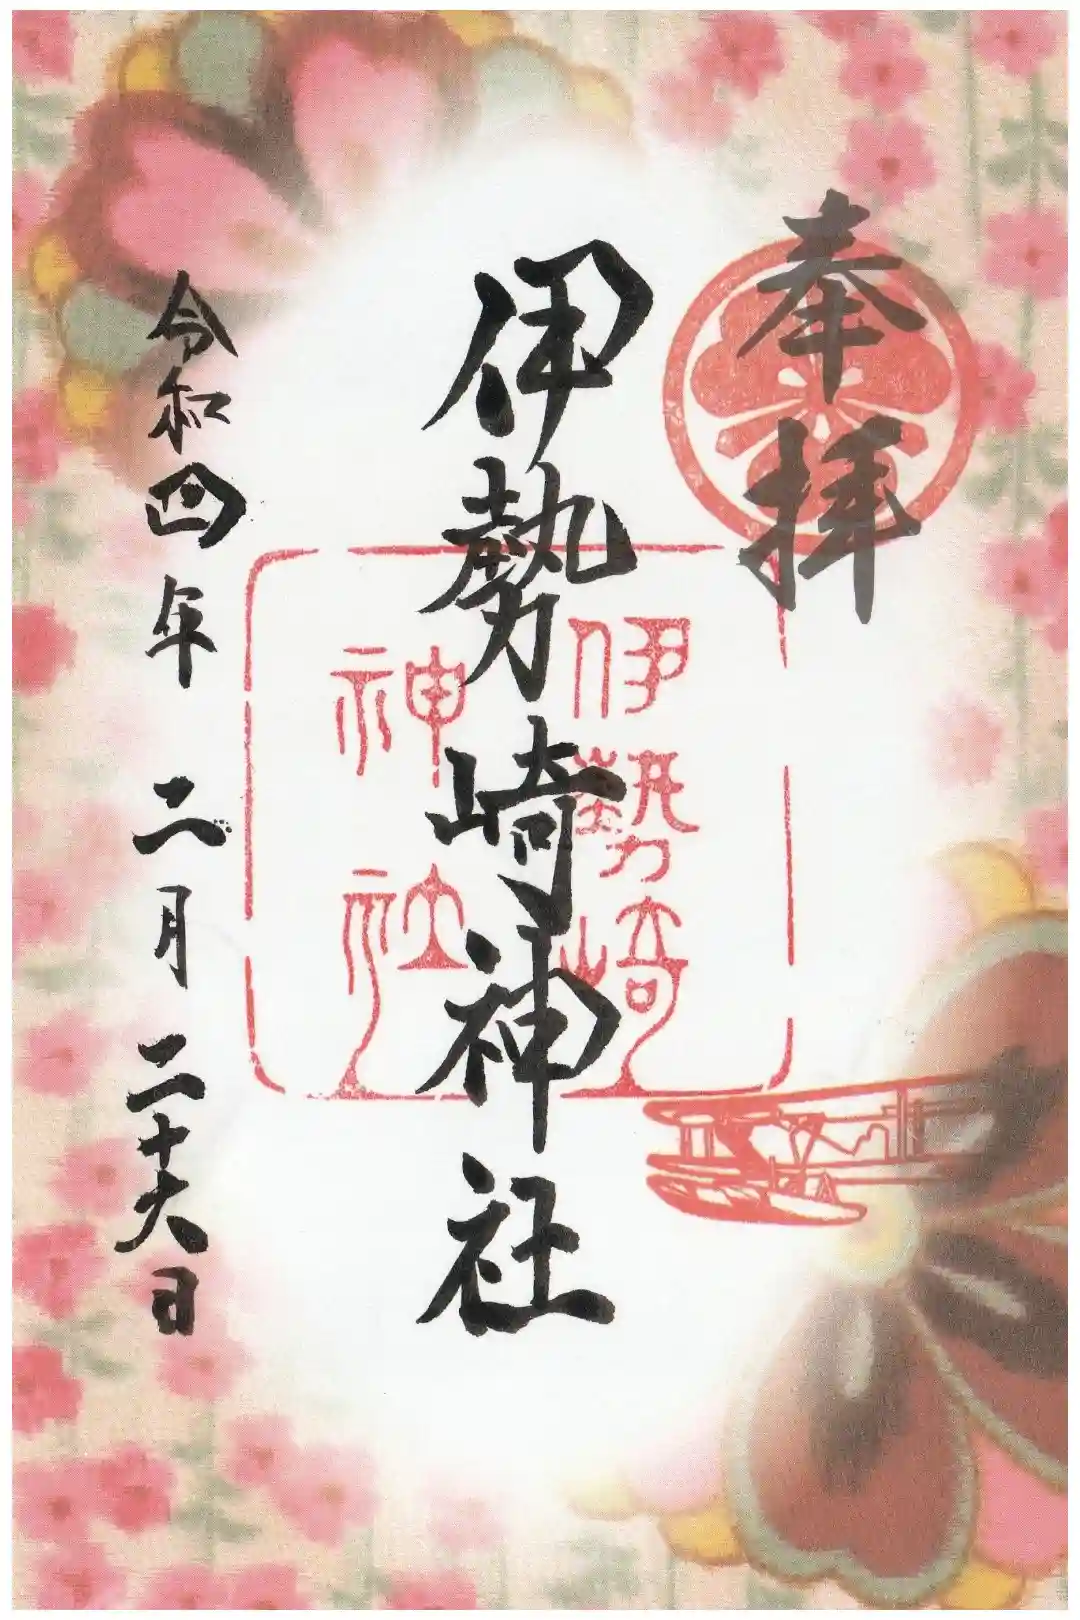 奉拝
伊勢崎神社
伊勢埼
神社
令和四年 二月 二十六日